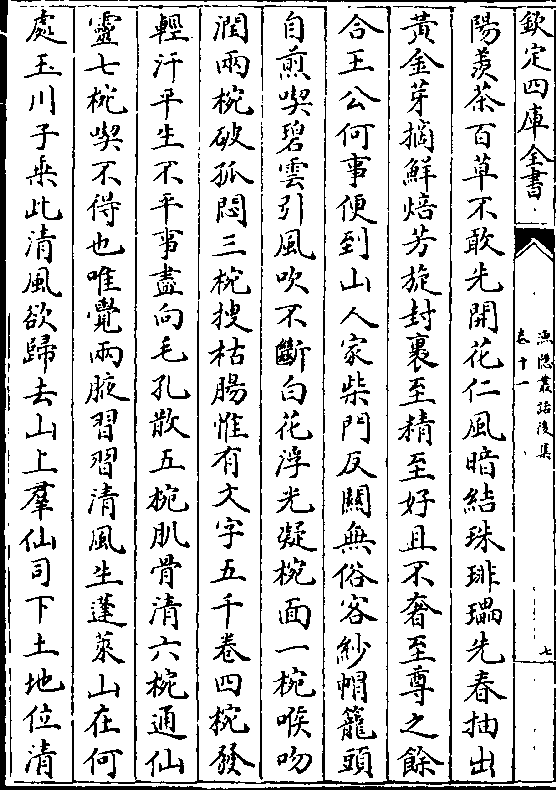 欽定四庫全書
漁隱叢話後集
卷十一
七
陽羡茶百草不敢先開花仁風暗結珠琲瓃先春抽出
黃金芽摘鮮焙芳旋封裹至精至好且不奢至尊之餘
合王公何事便到山人家柴門反關無俗客紗帽籠頭
自煎喫碧雲引風吹不斷白花浮光凝椀面一椀喉吻
潤兩椀破孤悶三椀搜枯腸惟有文字五千卷四椀發
輕汗平生不平事盡向毛孔散五椀肌骨清六椀通仙
靈七椀喫不得也唯覺兩腋習習清風生蓬萊山在何
處玉川子乗此清風欲歸去山上羣仙司下土地位清